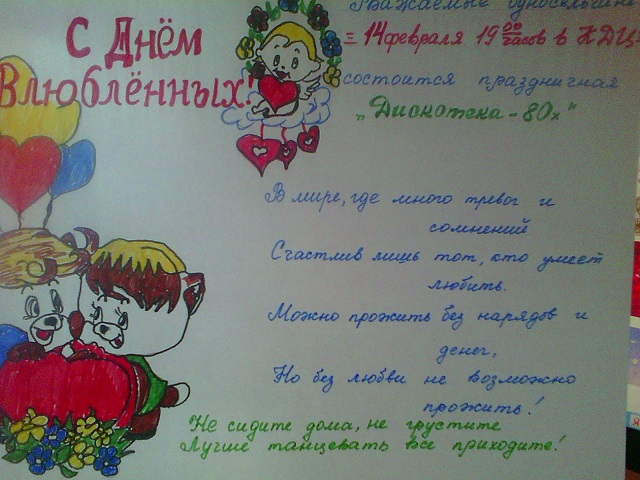 С Днём
Влюблённых!
Уважаемые односельчане
= 14 февраля 19 00 часов в КДЦ
состоится праздничная
„Дискотека - 80х"
В мире, где много тревог и
сомнений
Счастлив лишь тот, кто умеет
любить.
Можно прожить без нарядов и
денег,
Но без любви не возможно
прожить!
Не сидите дома, не грустите
Лучше танцевать все приходите!